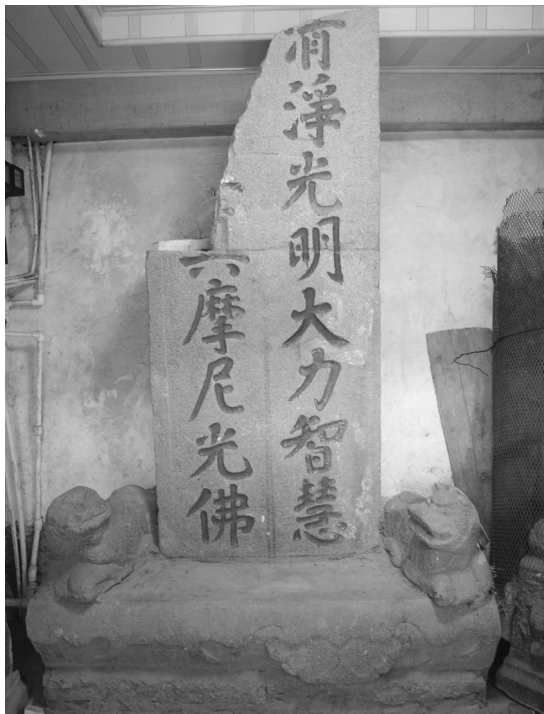 清淨光明大力智慧
摩尼光佛